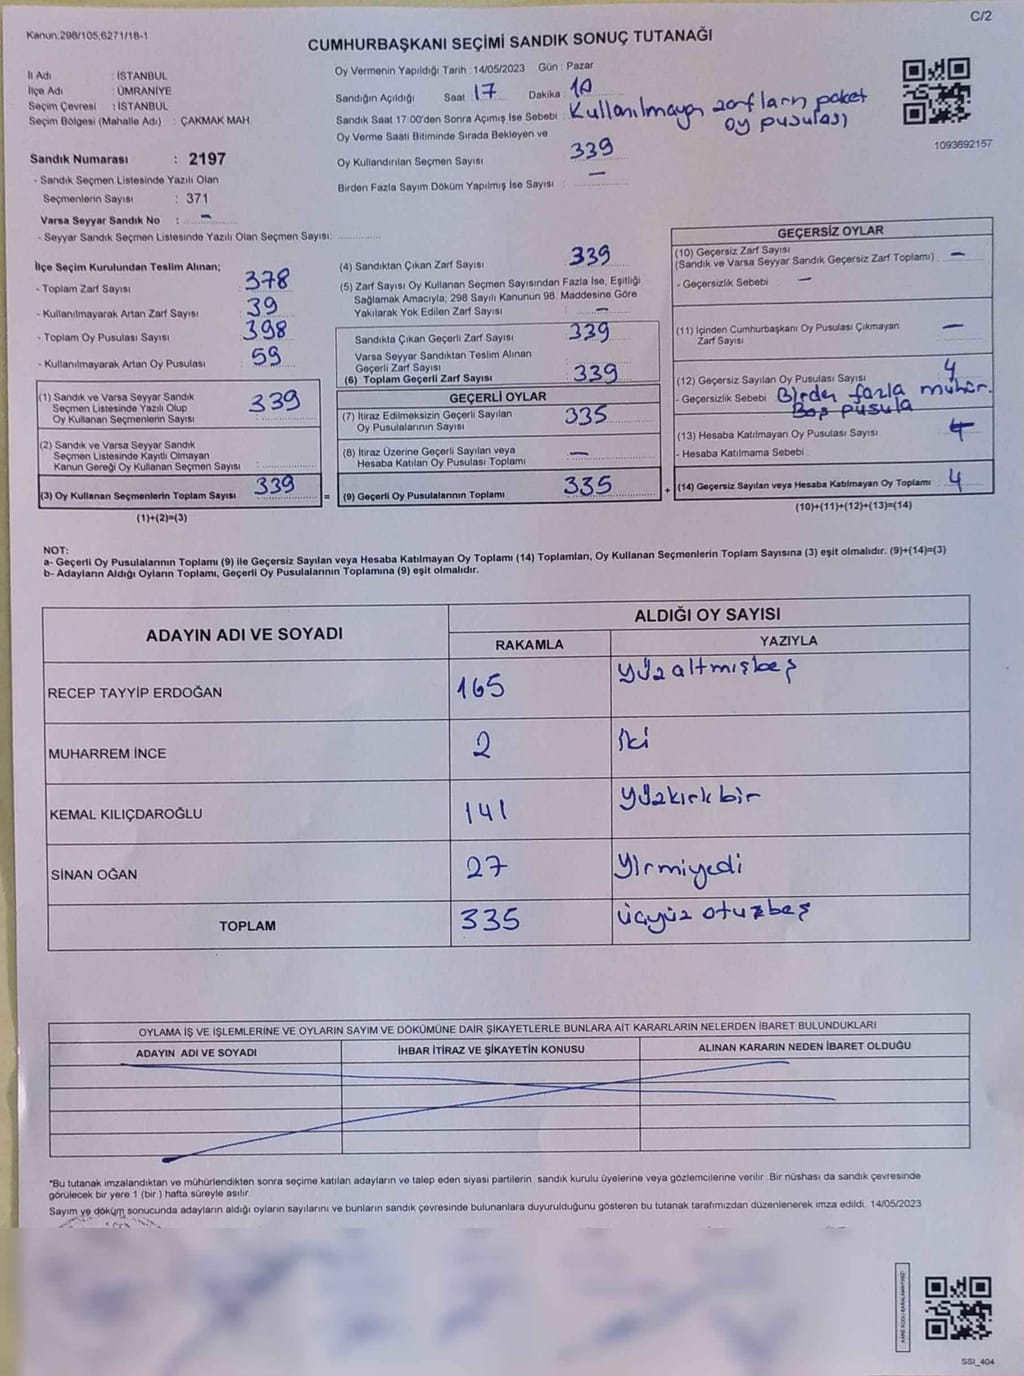 C/2
Kanun.298/105,6271/18-1
CUMHURBAŞKANI SEÇİMİ SANDIK SONUÇ TUTANAĞI
İl Adı : İSTANBUL
İlçe Adı : ÜMRANİYE
Seçim Çevresi : İSTANBUL
Seçim Bölgesi (Mahalle Adı) : ÇAKMAK MAH.
Oy Vermenin Yapıldığı Tarih : 14/05/2023 Gün : Pazar
Sandığın Açıldığı Saat 17 Dakika 10
Sandık Saat 17:00'den Sonra Açılmış İse Sebebi : Kullanılmayan zarfların paket
oy pusulası)
Oy Verme Saati Bitiminde Sırada Bekleyen ve
Oy Kullandırılan Seçmen Sayısı 339
Birden Fazla Sayım Döküm Yapılmış İse Sayısı : —
1093692157
Sandık Numarası : 2197
- Sandık Seçmen Listesinde Yazılı Olan
Seçmenlerin Sayısı : 371
Varsa Seyyar Sandık No : —
- Seyyar Sandık Seçmen Listesinde Yazılı Olan Seçmen Sayısı:
İlçe Seçim Kurulundan Teslim Alınan;
- Toplam Zarf Sayısı 378
- Kullanılmayarak Artan Zarf Sayısı 39
- Toplam Oy Pusulası Sayısı 398
- Kullanılmayarak Artan Oy Pusulası 59
(1) Sandık ve Varsa Seyyar Sandık
Seçmen Listesinde Yazılı Olup
Oy Kullanan Seçmenlerin Sayısı 339
(2) Sandık ve Varsa Seyyar Sandık
Seçmen Listesinde Kayıtlı Olmayan
Kanun Gereği Oy Kullanan Seçmen Sayısı :
(3) Oy Kullanan Seçmenlerin Toplam Sayısı 339
(1)+(2)=(3)
(4) Sandıktan Çıkan Zarf Sayısı 339
(5) Zarf Sayısı Oy Kullanan Seçmen Sayısından Fazla İse, Eşitliği
Sağlamak Amacıyla; 298 Sayılı Kanunun 98. Maddesine Göre
Yakılarak Yok Edilen Zarf Sayısı : —
Sandıkta Çıkan Geçerli Zarf Sayısı 339
Varsa Seyyar Sandıktan Teslim Alınan
Geçerli Zarf Sayısı
(6) Toplam Geçerli Zarf Sayısı 339
GEÇERLİ OYLAR
(7) İtiraz Edilmeksizin Geçerli Sayılan
Oy Pusulalarının Sayısı 335
(8) İtiraz Üzerine Geçerli Sayılan veya
Hesaba Katılan Oy Pusulası Toplamı —
= (9) Geçerli Oy Pusulalarının Toplamı 335
GEÇERSİZ OYLAR
(10) Geçersiz Zarf Sayısı
(Sandık ve Varsa Seyyar Sandık Geçersiz Zarf Toplamı) —
- Geçersizlik Sebebi : —
(11) İçinden Cumhurbaşkanı Oy Pusulası Çıkmayan
Zarf Sayısı —
(12) Geçersiz Sayılan Oy Pusulası Sayısı 4
- Geçersizlik Sebebi Birden fazla mühür.
Boş pusula
(13) Hesaba Katılmayan Oy Pusulası Sayısı
- Hesaba Katılmama Sebebi :
+ (14) Geçersiz Sayılan veya Hesaba Katılmayan Oy Toplamı : 4
(10)+(11)+(12)+(13)=(14)
NOT:
a- Geçerli Oy Pusulalarının Toplamı (9) ile Geçersiz Sayılan veya Hesaba Katılmayan Oy Toplamı (14) Toplamları, Oy Kullanan Seçmenlerin Toplam Sayısına (3) eşit olmalıdır. (9)+(14)=(3)
b- Adayların Aldığı Oyların Toplamı, Geçerli Oy Pusulalarının Toplamına (9) eşit olmalıdır.
ADAYIN ADI VE SOYADI
ALDIĞI OY SAYISI
RAKAMLA YAZIYLA
RECEP TAYYİP ERDOĞAN 165 yüzaltmışbeş
MUHARREM İNCE 2 iki
KEMAL KILIÇDAROĞLU 141 yüzkırkbir
SİNAN OĞAN 27 yirmiyedi
TOPLAM 335 üçyüz otuzbeş
OYLAMA İŞ VE İŞLEMLERİNE VE OYLARIN SAYIM VE DÖKÜMÜNE DAİR ŞİKAYETLERLE BUNLARA AİT KARARLARIN NELERDEN İBARET BULUNDUKLARI
ADAYIN ADI VE SOYADI İHBAR İTİRAZ VE ŞİKAYETİN KONUSU ALINAN KARARIN NEDEN İBARET OLDUĞU
*Bu tutanak imzalandıktan ve mühürlendikten sonra seçime katılan adayların ve talep eden siyasi partilerin sandık kurulu üyelerine veya gözlemcilerine verilir. Bir nüshası da sandık çevresinde
görülecek bir yere 1 (bir ) hafta süreyle asılır.
Sayım ve döküm sonucunda adayların aldığı oyların sayılarını ve bunların sandık çevresinde bulunanlara duyurulduğunu gösteren bu tutanak tarafımızdan düzenlenerek imza edildi. 14/05/2023
KARE KODU KARALAMAYINIZ
SSI_404